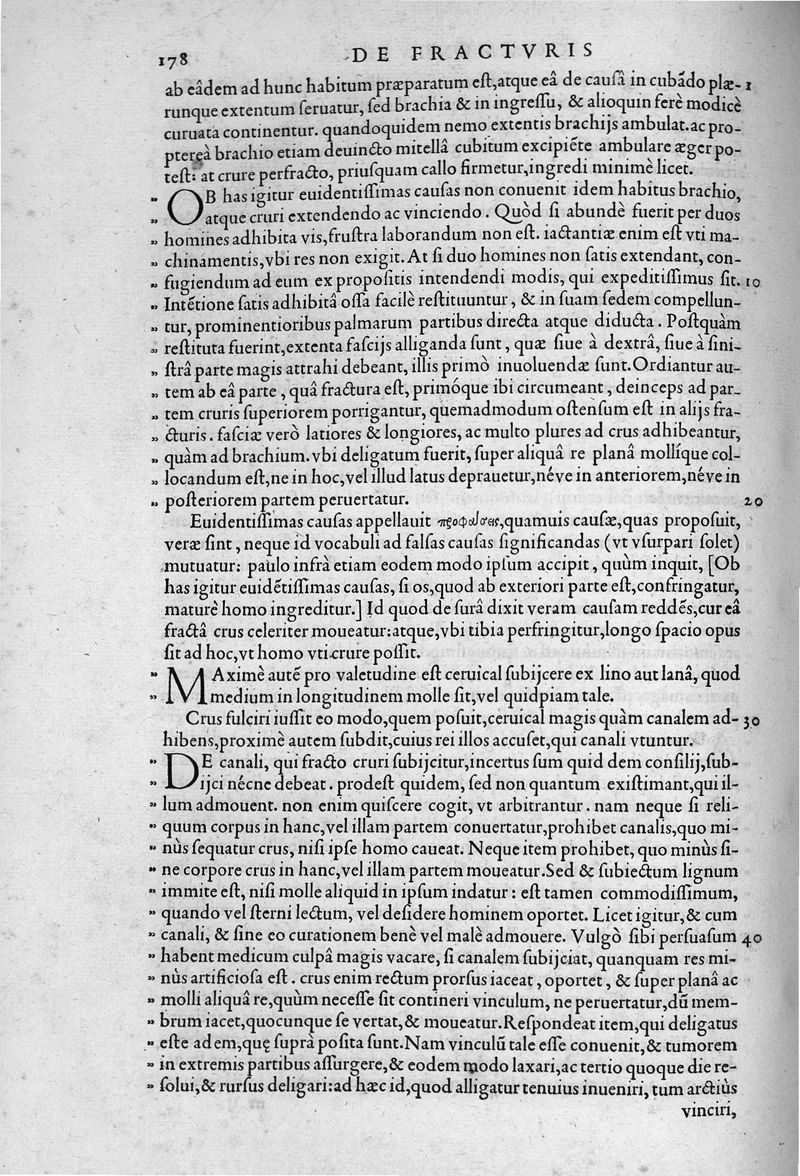 178 DE FRACTVRIS
ab eâdem ad hunc habitum præparatum est,atque eâ de causâ in cubādo plæ- 1
runque extentum seruatur, sed brachia & in ingressu, & alioquin ferè modicè
curuata continentur. quandoquidem nemo extentis brachijs ambulat.ac pro-
ptereà brachio etiam deuincto mitellâ cubitum excipiēte ambulare æger po-
test: at crure perfracto, priusquam callo firmetur,ingredi minimè licet.
„ OB has igitur euidentissimas causas non conuenit idem habitus brachio,
„ atque cruri extendendo ac vinciendo. Quòd si abundè fuerit per duos
„ homines adhibita vis,frustra laborandum non est. iactantiæ enim est vti ma-
„ chinamentis,vbi res non exigit. At si duo homines non satis extendant, con-
„ fugiendum ad eum ex propositis intendendi modis, qui expeditissimus sit. 10
„ Intētione satis adhibitâ ossa facilè restituuntur, & in suam sedem compellun-
„ tur, prominentioribus palmarum partibus directa atque diducta. Postquàm
„ restituta fuerint,extenta fascijs alliganda sunt, quæ siue à dextrâ, siue à sini-
„ strâ parte magis attrahi debeant, illis primò inuoluendæ sunt. Ordiantur au-
„ tem ab eâ parte, quâ fractura est, primóque ibi circumeant, deinceps ad par-
„ tem cruris superiorem porrigantur, quemadmodum ostensum est in alijs fra-
„ cturis. fasciæ verò latiores & longiores, ac multo plures ad crus adhibeantur,
„ quàm ad brachium. vbi deligatum fuerit, super aliquâ re planâ mollíque col-
„ locandum est,ne in hoc,vel illud latus deprauetur,néve in anteriorem,néve in
„ posteriorem partem peruertatur. 20
Euidentissimas causas appellauit προφάσεις,quamuis causæ,quas proposuit,
veræ sint, neque id vocabuli ad falsas causas significandas (vt vsurpari solet)
mutuatur: paulo infrà etiam eodem modo ipsum accipit, quùm inquit, [Ob
has igitur euidētissimas causas, si os,quod ab exteriori parte est,confringatur,
maturè homo ingreditur.] Id quod de surâ dixit veram causam reddēs,cur eâ
fractâ crus celeriter moueatur:atque,vbi tibia perfringitur,longo spacio opus
sit ad hoc,vt homo vti crure possit.
„ MAximè autē pro valetudine est ceruical subijcere ex lino aut lanâ, quod
„ medium in longitudinem molle sit,vel quidpiam tale.
Crus fulciri iussit eo modo,quem posuit,ceruical magis quàm canalem ad- 30
hibens,proximè autem subdit,cuius rei illos accuset,qui canali vtuntur.
„ DE canali, qui fracto cruri subijcitur,incertus sum quid dem consilij,sub-
„ ijci nécne debeat. prodest quidem, sed non quantum existimant,qui il-
„ lum admouent. non enim quiscere cogit, vt arbitrantur. nam neque si reli-
„ quum corpus in hanc,vel illam partem conuertatur,prohibet canalis,quo mi-
„ nùs sequatur crus, nisi ipse homo caueat. Neque item prohibet, quo minùs si-
„ ne corpore crus in hanc,vel illam partem moueatur.Sed & subiectum lignum
„ immite est, nisi molle aliquid in ipsum indatur: est tamen commodissimum,
„ quando vel sterni lectum, vel desidere hominem oportet. Licet igitur,& cum
„ canali, & sine eo curationem benè vel malè admouere. Vulgò sibi persuasum 40
„ habent medicum culpâ magis vacare, si canalem subijciat, quanquam res mi-
„ nùs artificiosa est. crus enim rectum prorsus iaceat, oportet, & super planâ ac
„ molli aliquâ re,quùm necesse sit contineri vinculum, ne peruertatur,dū mem-
„ brum iacet,quocunque se vertat,& moueatur.Respondeat item,qui deligatus
„ este adem,quę suprà posita sunt.Nam vinculū tale esse conuenit,& tumorem
„ in extremis partibus assurgere,& eodem modo laxari,ac tertio quoque die re-
„ solui,& rursus deligari:ad hæc id,quod alligatur tenuius inueniri, tum arctiùs
vinciri,